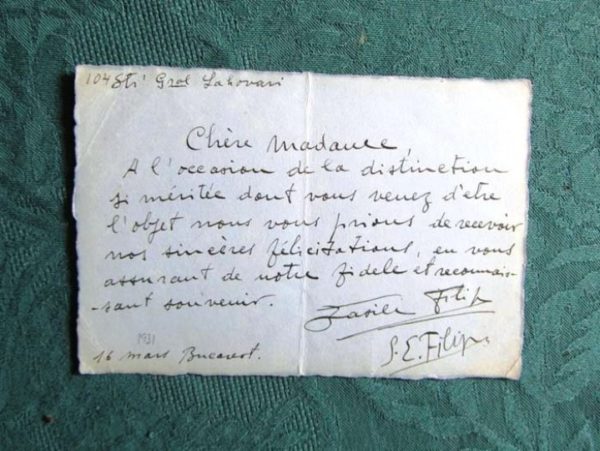 104 Str. Gral Lahovari
Chère Madame,
A l'occasion de la distinction
si méritée dont vous venez d'être
l'objet nous vous prions de recevoir
nos sincères félicitations, en vous
assurant de notre fidele et reconnais-
-sant souvenir.
Vasile Filip
S. E. Filip
1931
16 mars Bucarest.